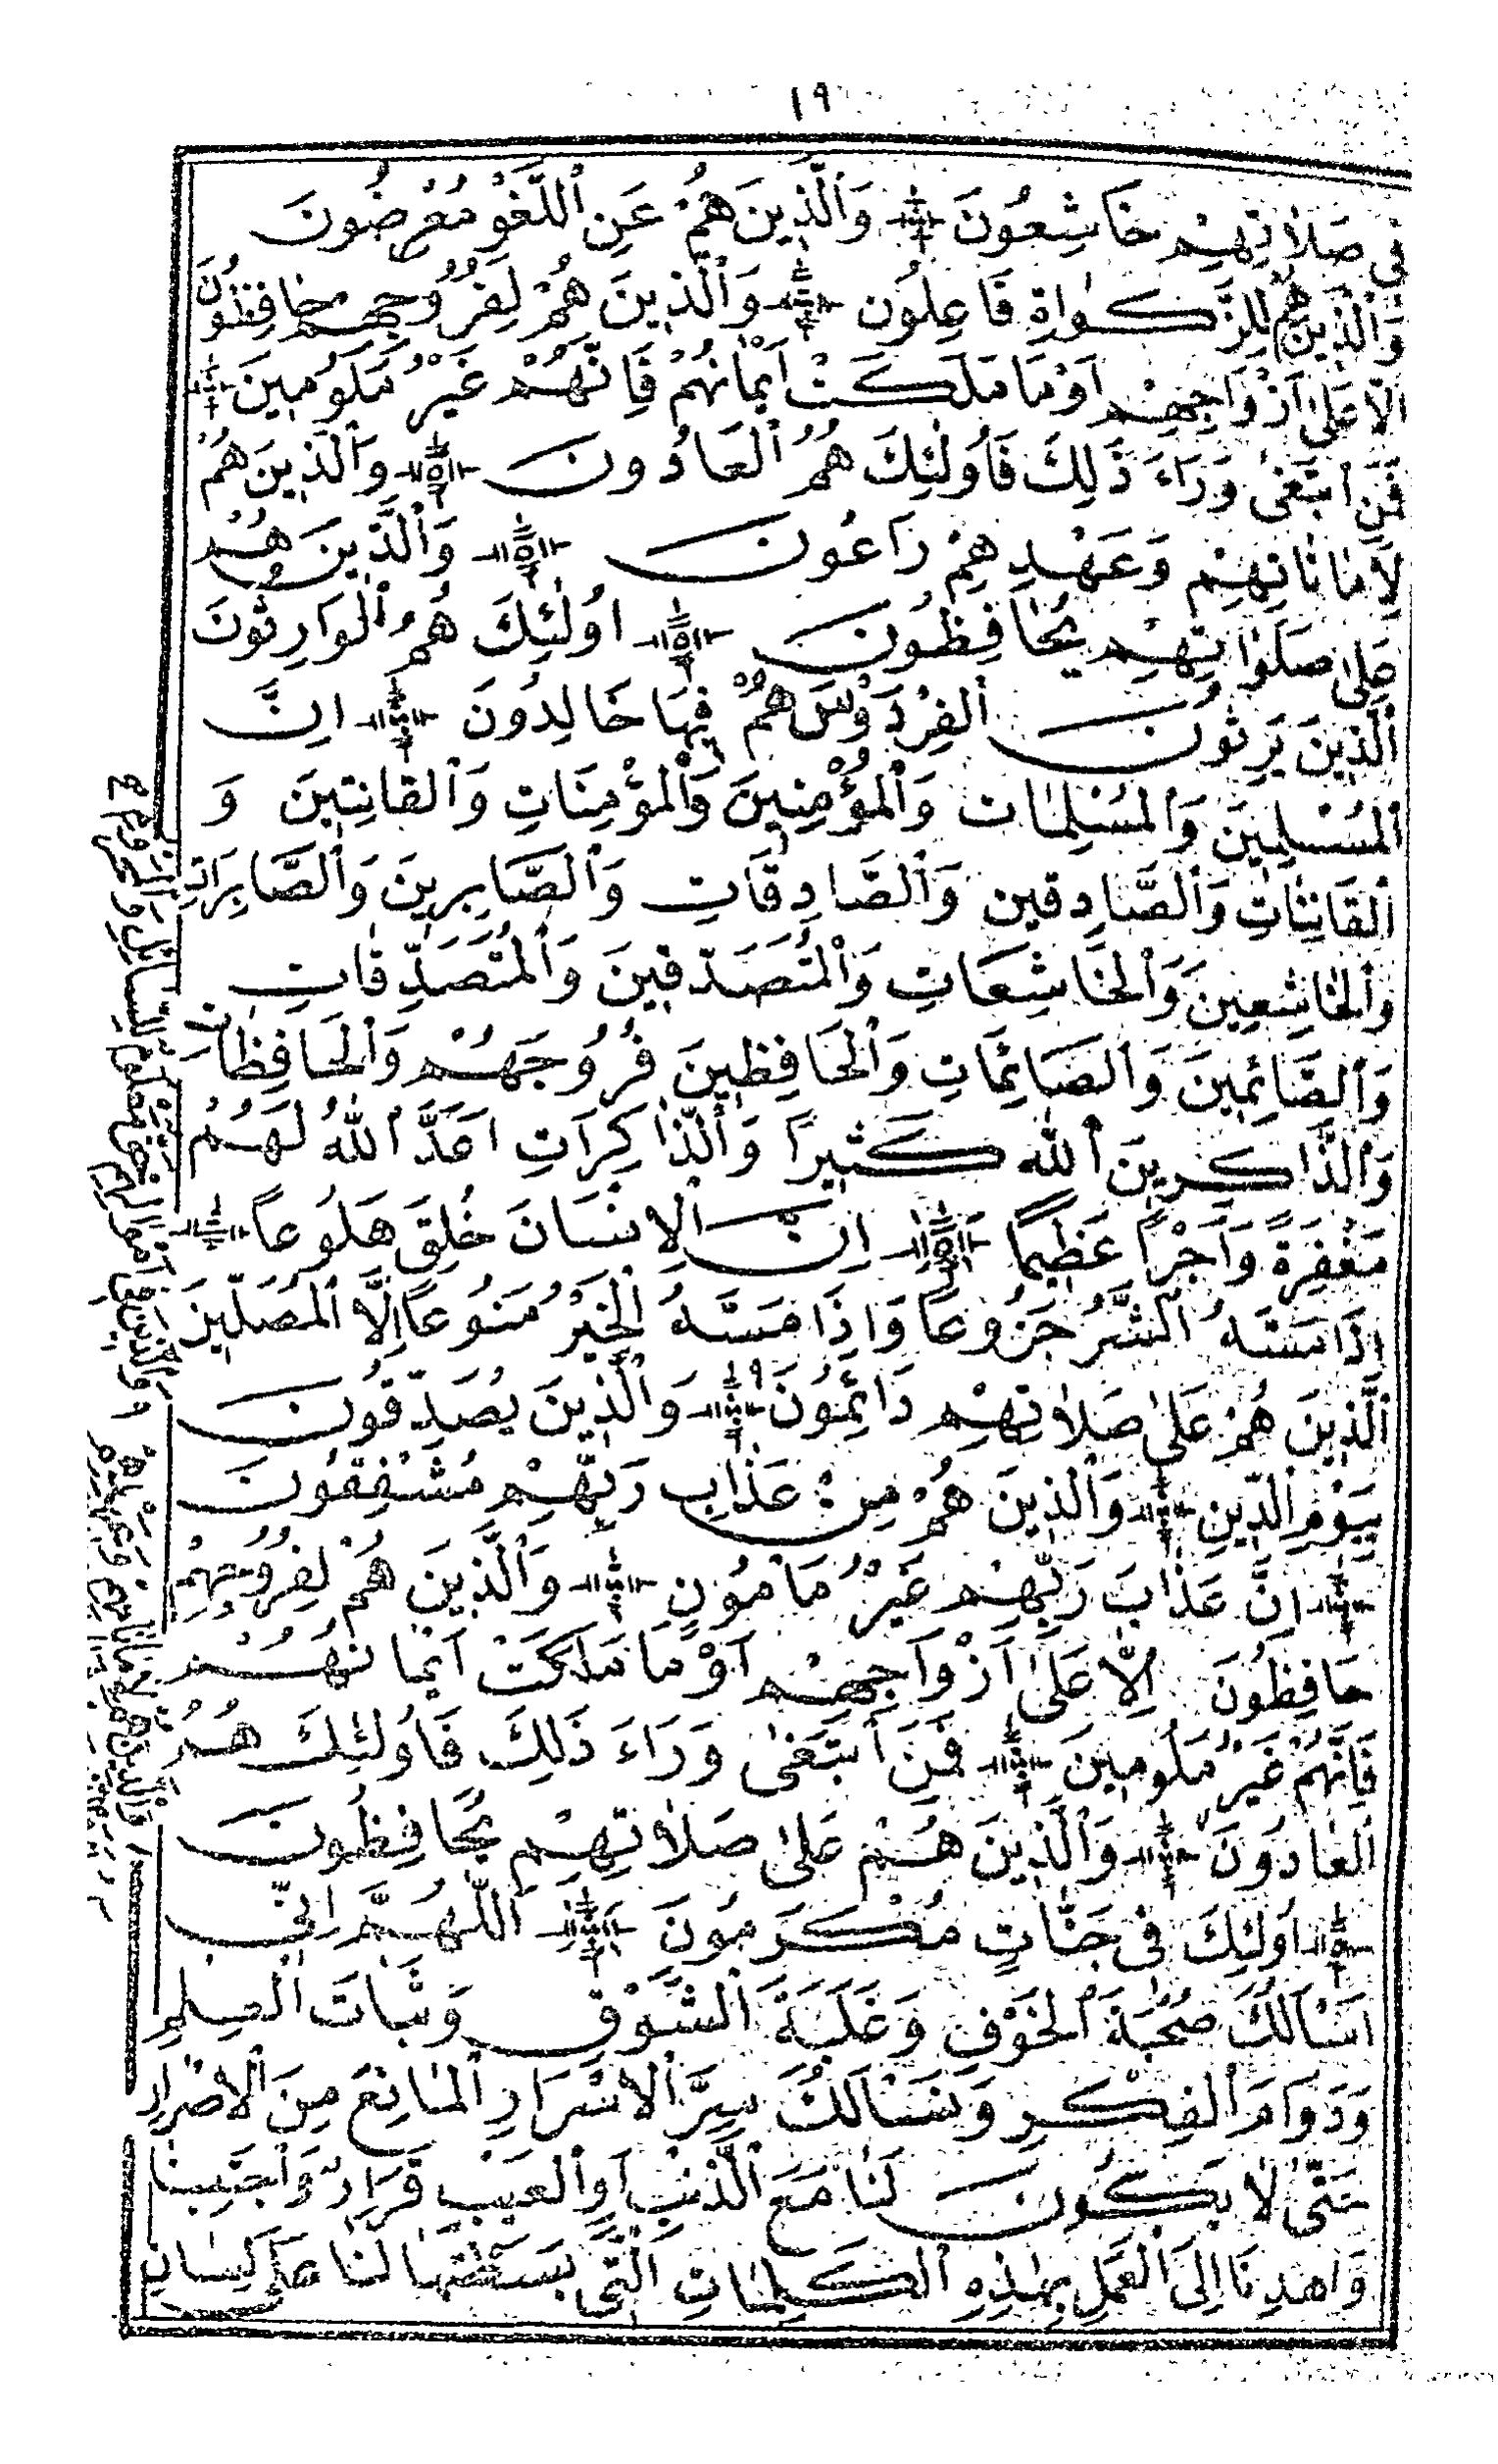 ١٩
فِي صَلَاتِهِمْ خَاشِعُونَ وَالَّذِينَ هُمْ عَنِ اللَّغْوِ مُعْرِضُونَ
وَالَّذِينَ هُمْ لِلزَّكٰوةِ فَاعِلُونَ وَالَّذِينَ هُمْ لِفُرُوجِهِمْ حَافِظُونَ
اِلَّا عَلَىٰ اَزْوَاجِهِمْ اَوْ مَا مَلَكَتْ اَيْمَانُهُمْ فَاِنَّهُمْ غَيْرُ مَلُومِينَ
فَمَنِ ابْتَغَىٰ وَرَاءَ ذَلِكَ فَأُولَٰئِكَ هُمُ الْعَادُونَ وَالَّذِينَ هُمْ
لِأَمَانَاتِهِمْ وَعَهْدِهِمْ رَاعُونَ وَالَّذِينَ هُمْ
عَلَىٰ صَلَوَاتِهِمْ يُحَافِظُونَ اُولَٰئِكَ هُمُ الْوَارِثُونَ
الَّذِينَ يَرِثُونَ الْفِرْدَوْسَ هُمْ فِيهَا خَالِدُونَ اِنَّ
الْمُسْلِمِينَ وَالْمُسْلِمَاتِ وَالْمُؤْمِنِينَ وَالْمُؤْمِنَاتِ وَالْقَانِتِينَ وَ
الْقَانِتَاتِ وَالصَّادِقِينَ وَالصَّادِقَاتِ وَالصَّابِرِينَ وَالصَّابِرَاتِ
وَالْخَاشِعِينَ وَالْخَاشِعَاتِ وَالْمُتَصَدِّقِينَ وَالْمُتَصَدِّقَاتِ
وَالصَّائِمِينَ وَالصَّائِمَاتِ وَالْحَافِظِينَ فُرُوجَهُمْ وَالْحَافِظَاتِ
وَالذَّاكِرِينَ اللهَ كَثِيرًا وَالذَّاكِرَاتِ اَعَدَّ اللهُ لَهُمْ
مَغْفِرَةً وَاَجْرًا عَظِيمًا اِنَّ الْاِنْسَانَ خُلِقَ هَلُوعاً
اِذَا مَسَّهُ الشَّرُّ جَزُوعاً وَاِذَا مَسَّهُ الْخَيْرُ مَنُوعاً اِلَّا الْمُصَلِّينَ
الَّذِينَ هُمْ عَلَىٰ صَلَاتِهِمْ دَائِمُونَ وَالَّذِينَ يُصَدِّقُونَ
بِيَوْمِ الدِّينِ وَالَّذِينَ هُمْ مِنْ عَذَابِ رَبِّهِمْ مُشْفِقُونَ
اِنَّ عَذَابَ رَبِّهِمْ غَيْرُ مَأْمُونٍ وَالَّذِينَ هُمْ لِفُرُوجِهِمْ
حَافِظُونَ اِلَّا عَلَىٰ اَزْوَاجِهِمْ اَوْ مَا مَلَكَتْ اَيْمَانُهُمْ
فَاِنَّهُمْ غَيْرُ مَلُومِينَ فَمَنِ ابْتَغَىٰ وَرَاءَ ذَلِكَ فَاُولَٰئِكَ هُمُ
الْعَادُونَ وَالَّذِينَ هُمْ عَلَىٰ صَلَاتِهِمْ يُحَافِظُونَ
اُولَٰئِكَ فِى جَنَّاتٍ مُكْرَمُونَ اَللّٰهُمَّ اِنِّى
اَسْاَلُكَ صُحْبَةَ الْخَوْفِ وَغَلَبَةَ الشَّوْقِ وَثَبَاتَ الْعِلْمِ
وَدَوَامَ الْفِكْرِ وَنَسْاَلُكَ سِرَّ الْاَسْرَارِ الْمَانِعَ مِنَ الْاِصْرَارِ
حَتّٰى لَا يَكُونَ لَنَا مَعَ الذَّنْبِ اَوِ الْعَيْبِ قَرَارٌ وَاجْتَبِنَا
وَاهْدِنَا اِلَى الْعَمَلِ بِهٰذِهِ الْكَلِمَاتِ الَّتِى بَسَطْتَهَا لَنَا عَلَى لِسَانِ
وَالَّذِينَ فِى اَمْوَالِهِمْ حَقٌّ مَعْلُومٌ لِلسَّائِلِ وَالْمَحْرُومِ
وَالَّذِينَ هُمْ لِاَمَانَاتِهِمْ وَعَهْدِهِمْ